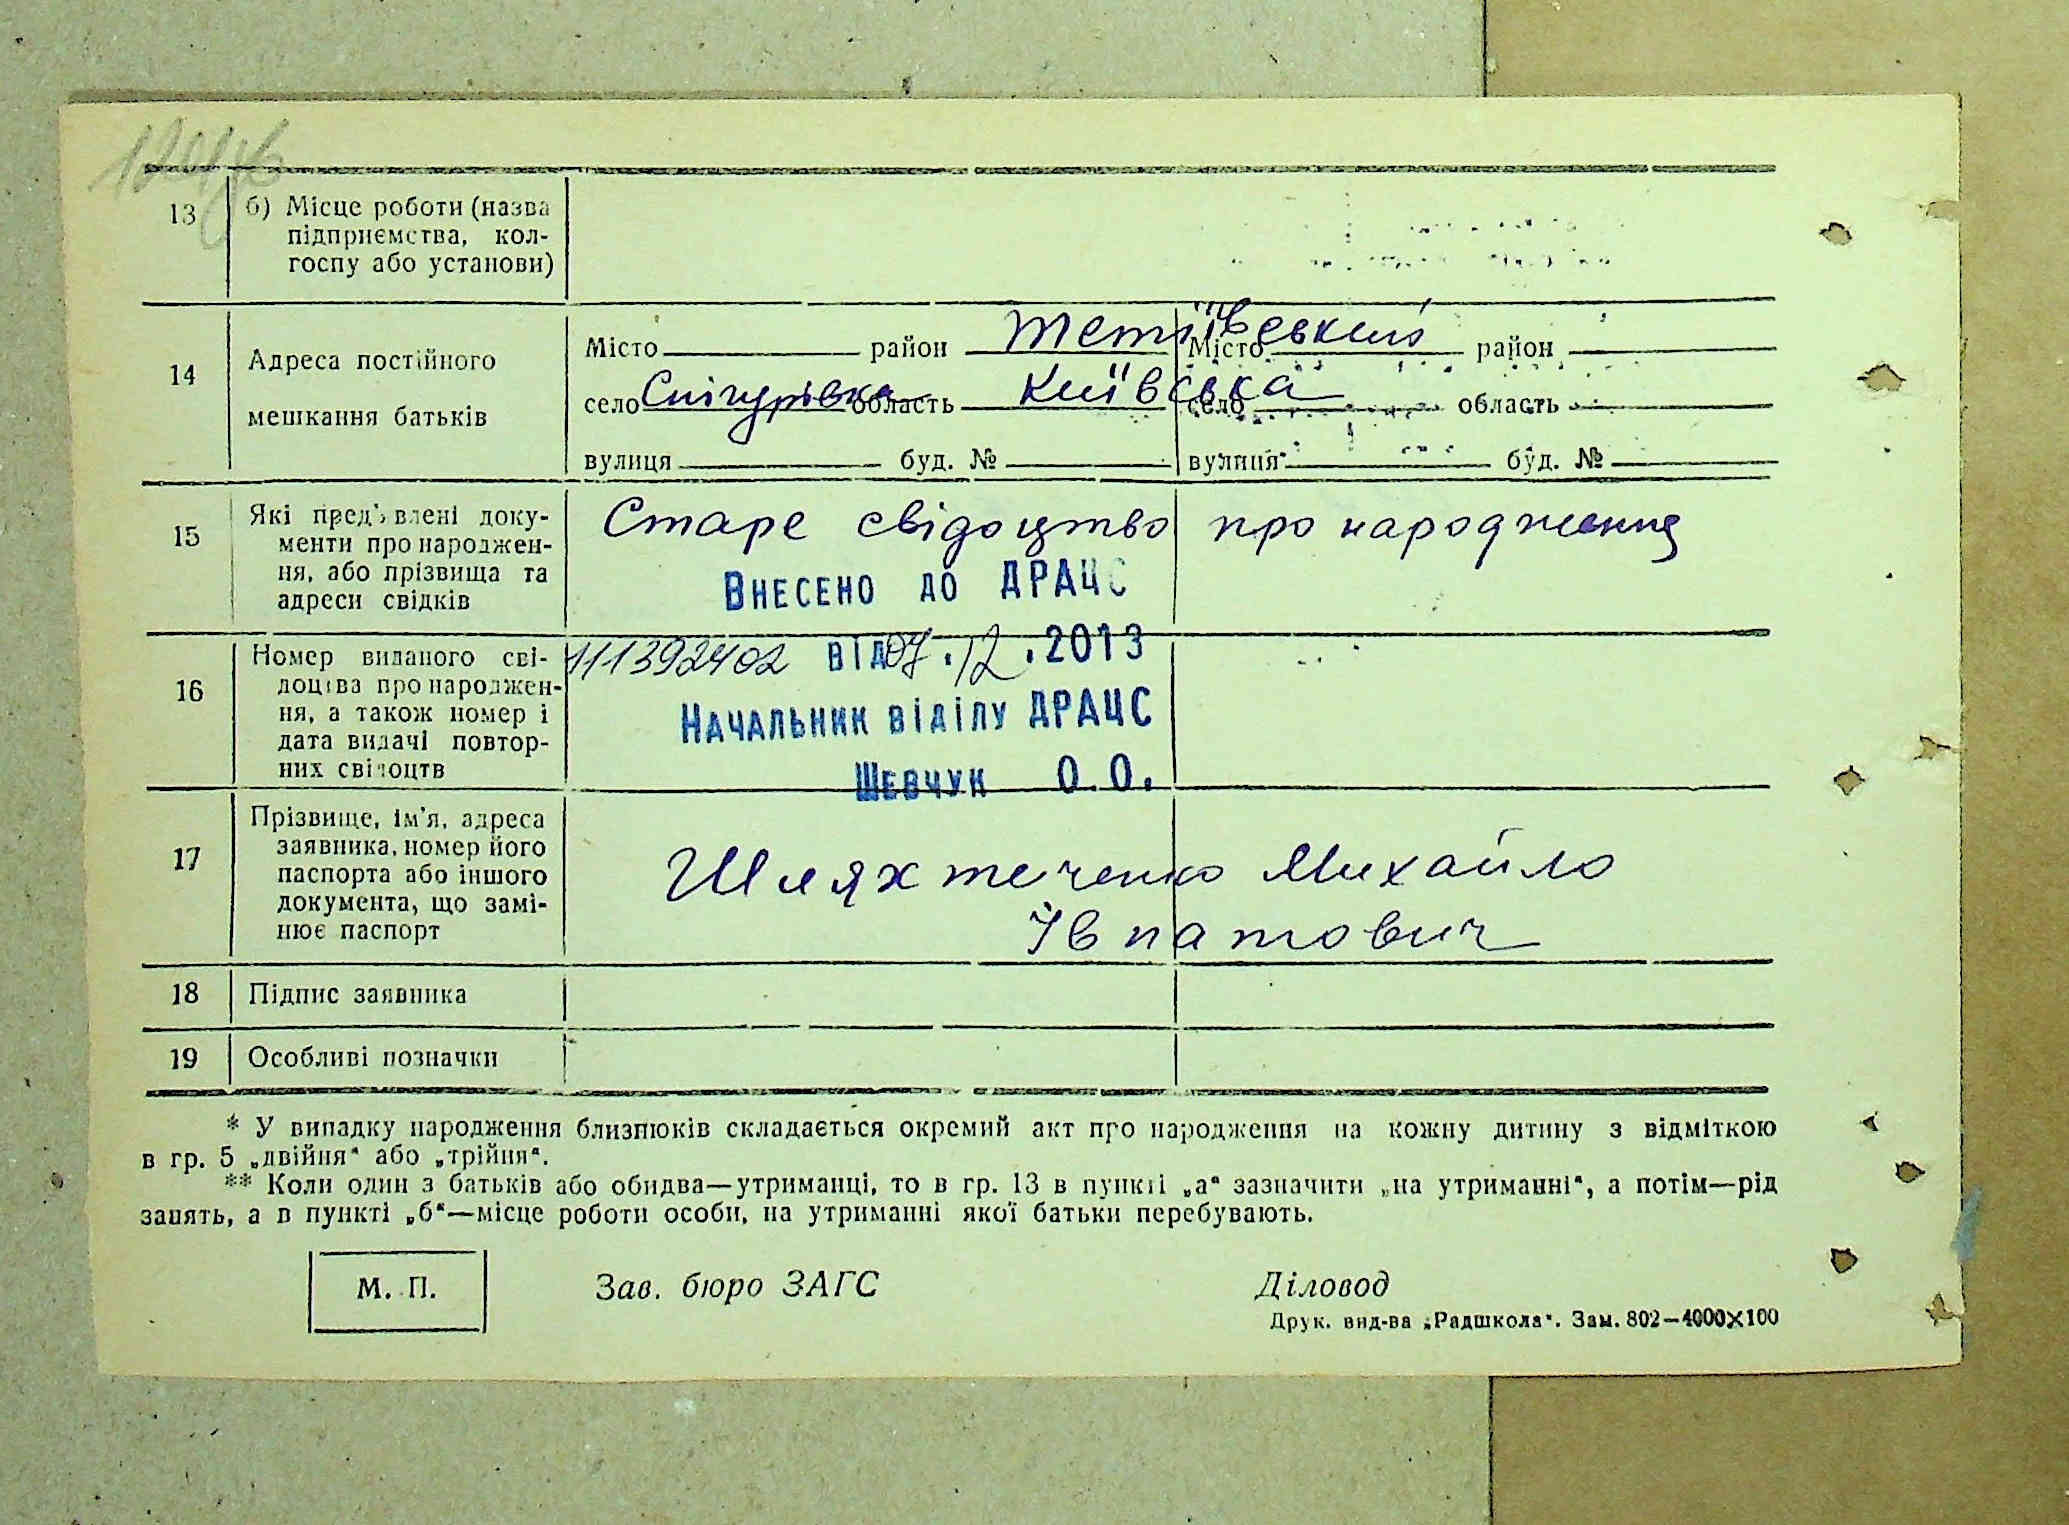 13 б) Місце роботи (назва
підприємства, кол-
госпу або установи)
14 Адреса постійного
мешкання батьків
Місто район Тетіївський Місто район
село Снігурівка область Київська село область
вулиця буд. № вулиця буд. №
15 Які пред'явлені доку-
менти про народжен-
ня, або прізвища та
адреси свідків
Старе свідоцтво про народження
Внесено до ДРАЦС
16 Номер виданого сві-
доцтва про народжен-
ня, а також номер і
дата видачі повтор-
них свідоцтв
111392402 від 07.12.2013
Начальник відділу ДРАЦС
Шевчук О.О.
17 Прізвище, ім'я, адреса
заявника, номер його
паспорта або іншого
документа, що замі-
нює паспорт
Шляхтеченко Михайло
Івпатович
18 Підпис заявника
19 Особливі позначки
* У випадку народження близнюків складається окремий акт про народження на кожну дитину з відміткою
в гр. 5 „двійня“ або „трійня“.
** Коли один з батьків або обидва—утриманці, то в гр. 13 в пункті „а“ зазначити „на утриманні“, а потім—рід
занять, а в пункті „б“—місце роботи особи, на утриманні якої батьки перебувають.
М. П. Зав. бюро ЗАГС Діловод
Друк. вид-ва „Радшкола“. Зам. 802—4000×100